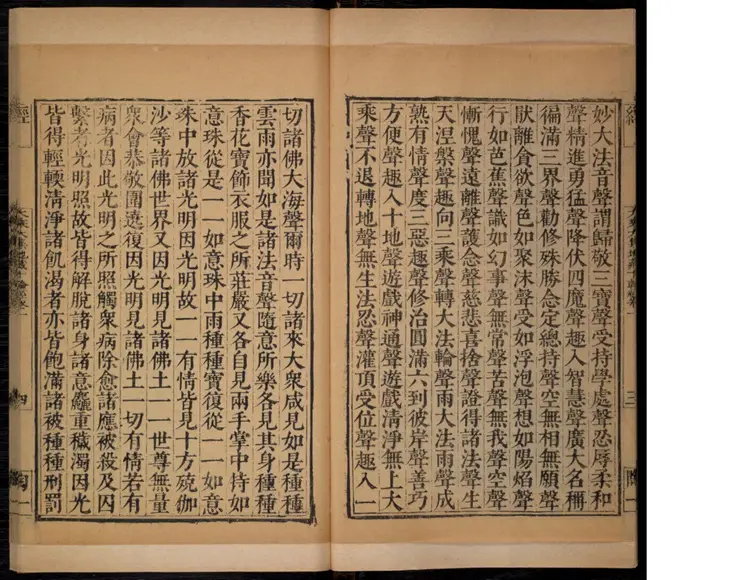 妙大法音聲謂歸敬三寶聲受持學處聲忍辱柔和
聲精進勇猛聲降伏四魔聲趣入智慧聲廣大名稱
徧滿三界聲勸修殊勝念定總持聲空無相無願聲
猒離貪欲聲色如聚沫聲受如浮泡聲想如陽焰聲
行如芭蕉聲識如幻事聲無常聲苦聲無我聲空聲
慚愧聲遠離聲護念聲慈悲喜捨聲證得諸法聲生
天涅槃聲趣向三乘聲轉大法輪聲雨大法雨聲成
熟有情聲度三惡趣聲修治圓滿六到彼岸聲善巧
方便聲趣入十地聲遊戲神通聲遊戲清淨無上大
乘聲不退轉地聲無生法忍聲灌頂受位聲趣入一
三
切諸佛大海聲爾時一切諸來大衆咸見如是種種
雲雨亦聞如是諸法音聲隨意所樂各見其身種種
香花寶飾衣服之所莊嚴又各自見兩手掌中持如
意珠從是一一如意珠中雨種種寶復從一一如意
珠中放諸光明因光明故一一有情皆見十方殑伽
沙等諸佛世界又因光明見諸佛土一一世尊無量
衆會恭敬圍遶復因光明見諸佛土一切有情若有
病者因此光明之所照觸衆病除愈諸應被殺及囚
繫者光明照故皆得解脫諸身語意麤重穢濁因光
皆得輕輭清淨諸飢渴者亦皆飽滿諸被種種刑罰
四